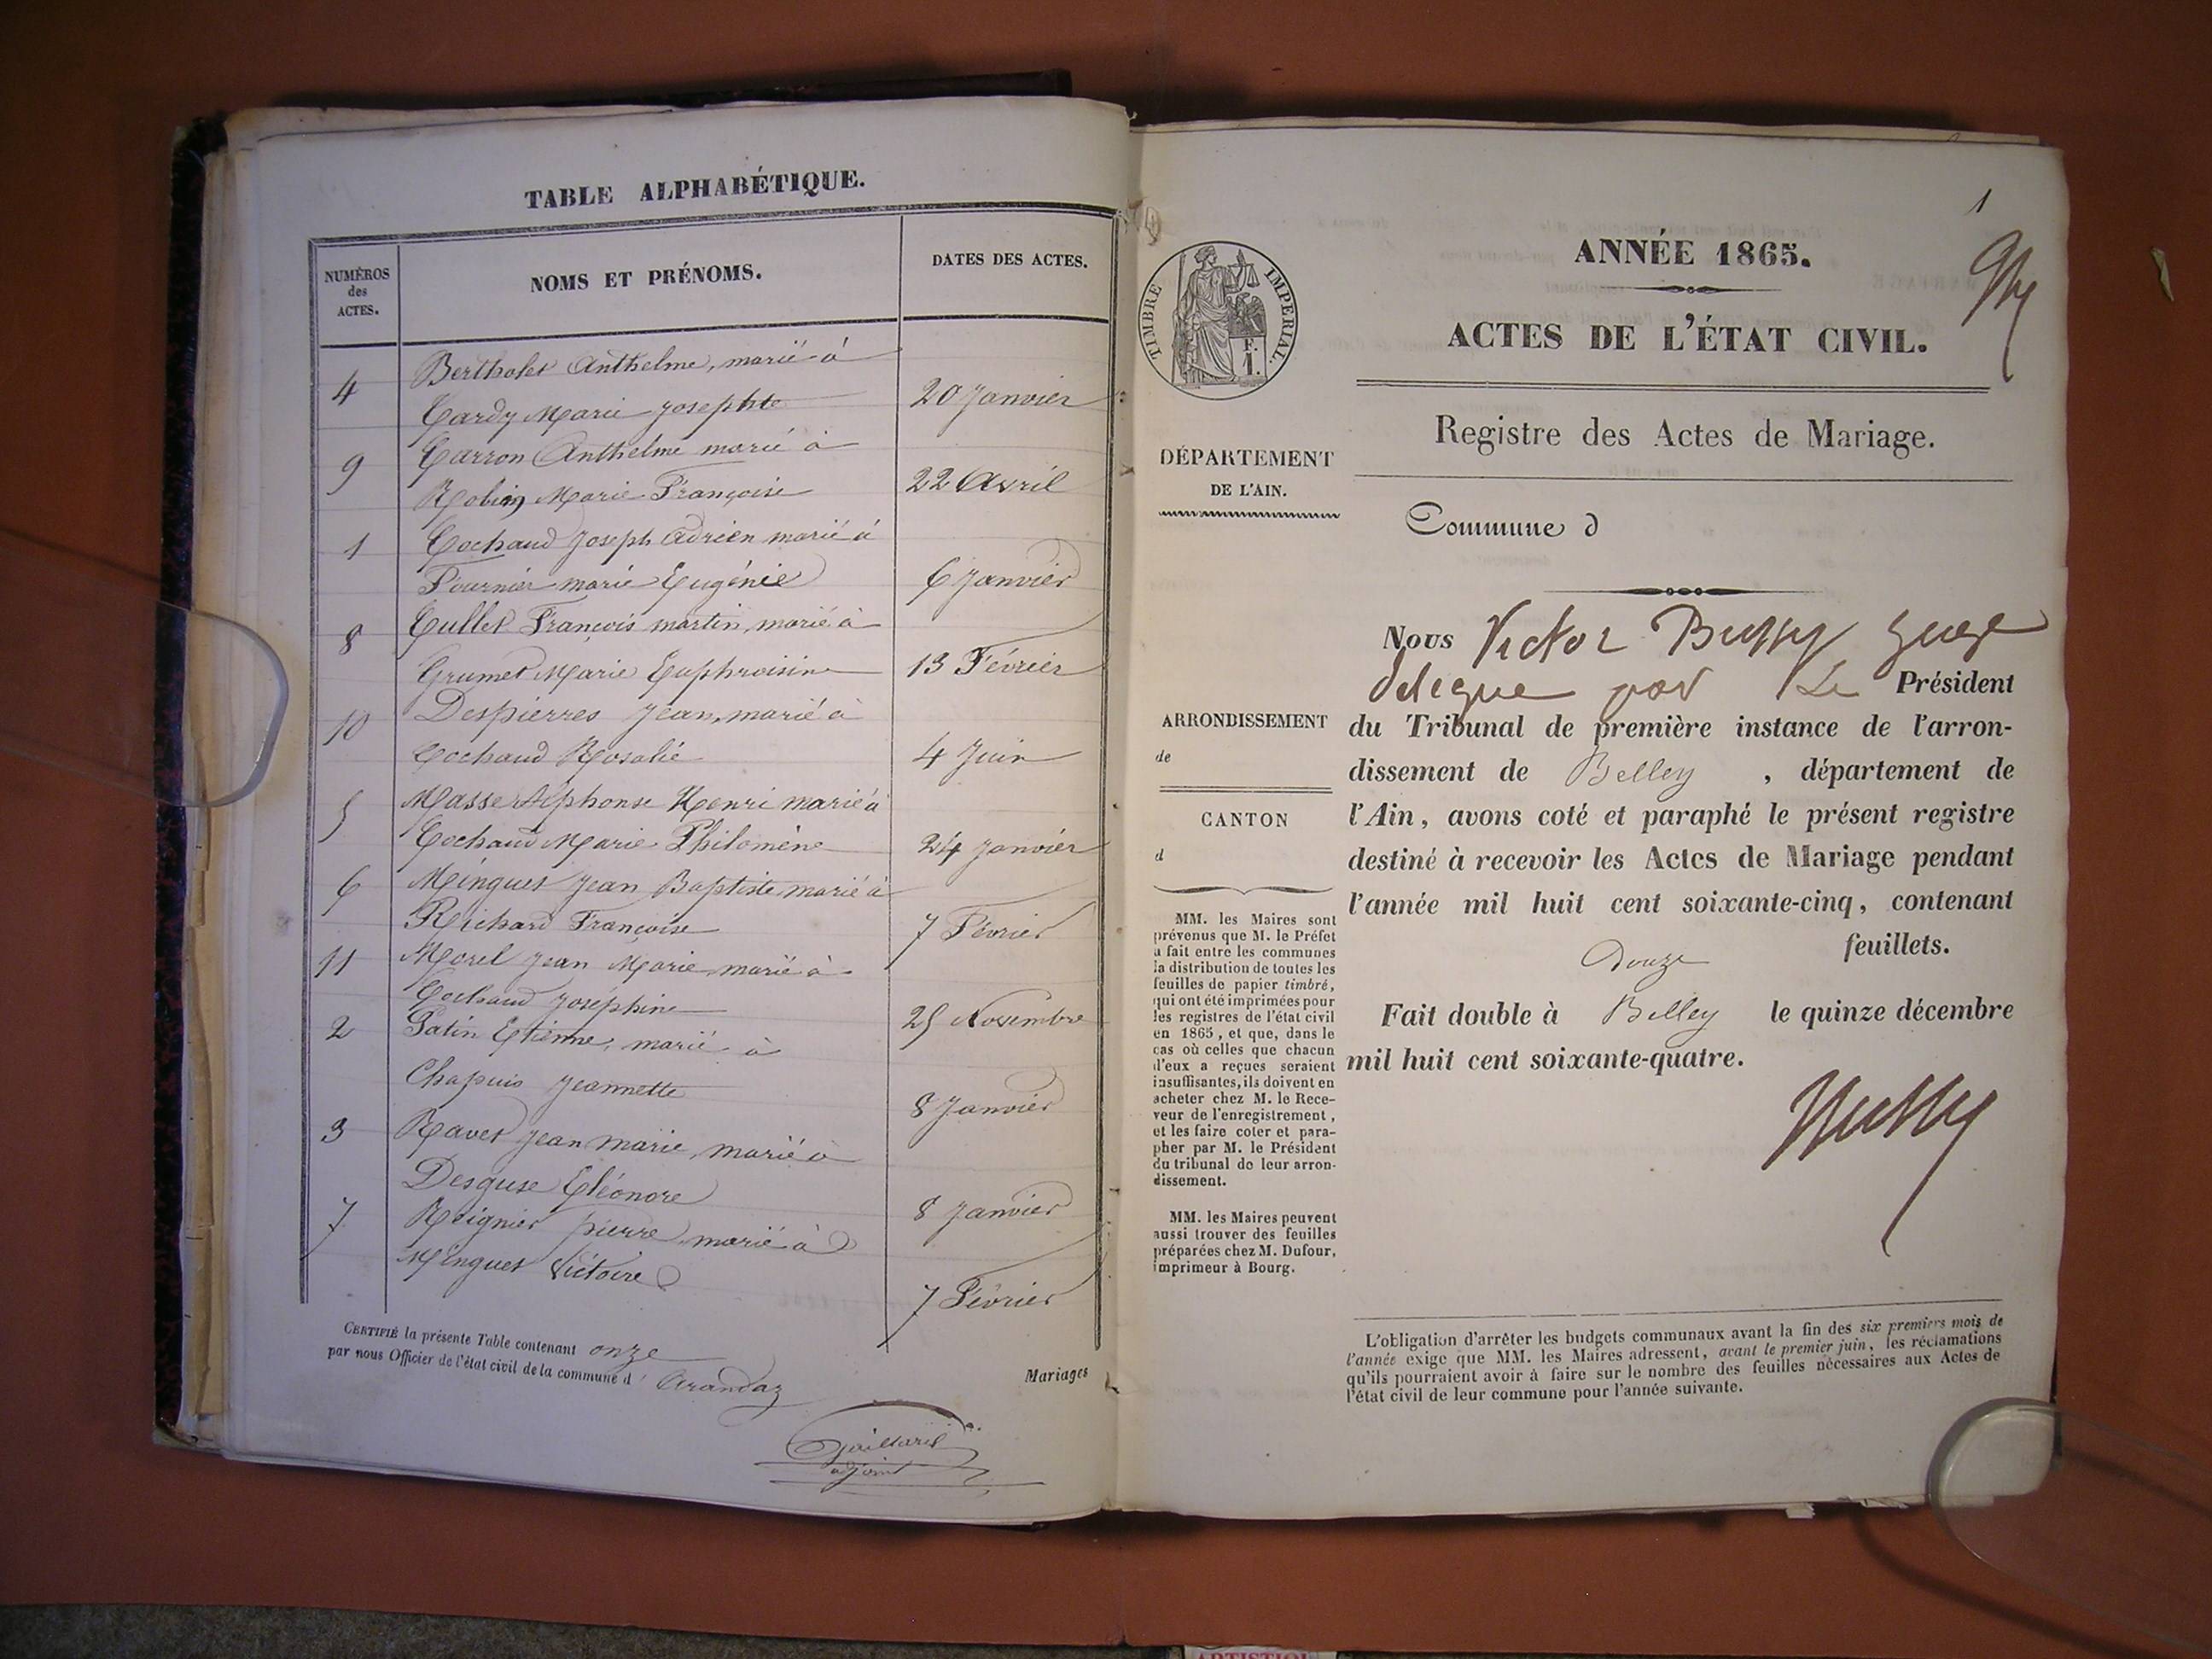 TABLE ALPHABÉTIQUE.
NUMÉROS
des
ACTES.
NOMS ET PRÉNOMS.
DATES DES ACTES.
4
Bertholet Anthelme, marié à
Cardy Marie Josephte
20 Janvier
9
Carron Anthelme marié à
Robin Marie Françoise
22 Avril
1
Cochaud Joseph Adrien marié à
Fournier marie Eugénie
6 Janvier
8
Cullet François martin, marié à
Grumet Marie Euphroisine
13 Février
10
Despierres Jean, marié à
Cochaud Rosalie
4 Juin
5
Masse Alphonse Henri marié à
Cochaud Marie Philomène
24 Janvier
6
Minguet Jean Baptiste marié à
Richard Françoise
7 Février
11
Morel Jean Marie marié à
Cochaud Joséphine
25 Novembre
2
Patin Etienne, marié à
Chapuis Jeannette
8 Janvier
3
Ravet Jean marie, marié à
Desguse Eléonore
8 Janvier
7
Reignier pierre marié à
Minguet Victoire
7 Février
CERTIFIÉ la présente Table contenant onze
Mariages
par nous Officier de l'état civil de la commune d' Arandaz
Gaillard
adjoint
1
TIMBRE IMPERIAL.
F.
1.
ANNÉE 1865.
ACTES DE L'ÉTAT CIVIL.
Registre des Actes de Mariage.
DÉPARTEMENT
DE L'AIN.
Commune d
ARRONDISSEMENT
de
CANTON
d
Nous Victor Bussy Juge
délégué par Le Président
du Tribunal de première instance de l'arron-
dissement de Belley, département de
l'Ain, avons coté et paraphé le présent registre
destiné à recevoir les Actes de Mariage pendant
l'année mil huit cent soixante-cinq, contenant
Douze feuillets.
Fait double à Belley le quinze décembre
mil huit cent soixante-quatre.
Bussy
MM. les Maires sont
prévenus que M. le Préfet
a fait entre les communes
la distribution de toutes les
feuilles de papier timbré,
qui ont été imprimées pour
les registres de l'état civil
en 1865, et que, dans le
cas où celles que chacun
d'eux a reçues seraient
insuffisantes, ils doivent en
acheter chez M. le Rece-
veur de l'enregistrement,
et les faire coter et para-
pher par M. le Président
du tribunal de leur arron-
dissement.
MM. les Maires peuvent
aussi trouver des feuilles
préparées chez M. Dufour,
imprimeur à Bourg.
L'obligation d'arrêter les budgets communaux avant la fin des six premiers mois de
l'année exige que MM. les Maires adressent, avant le premier juin, les réclamations
qu'ils pourraient avoir à faire sur le nombre des feuilles nécessaires aux Actes de
l'état civil de leur commune pour l'année suivante.